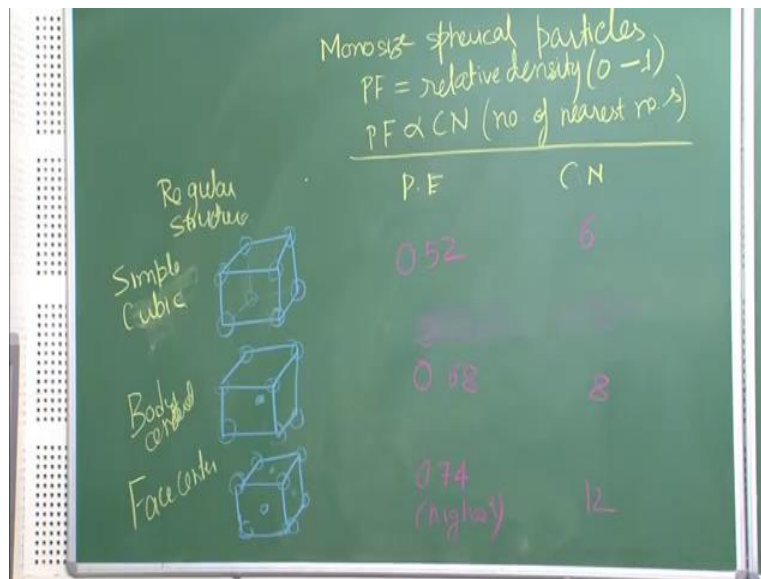 Monosize spherical particles
PF = relative density (0 – 1)
PF ∝ CN (no. of nearest no.s)
Regular structure
P.E C.N
Simple Cubic 0.52 6
Body centered 0.68 8
Face center 0.74 (highest) 12